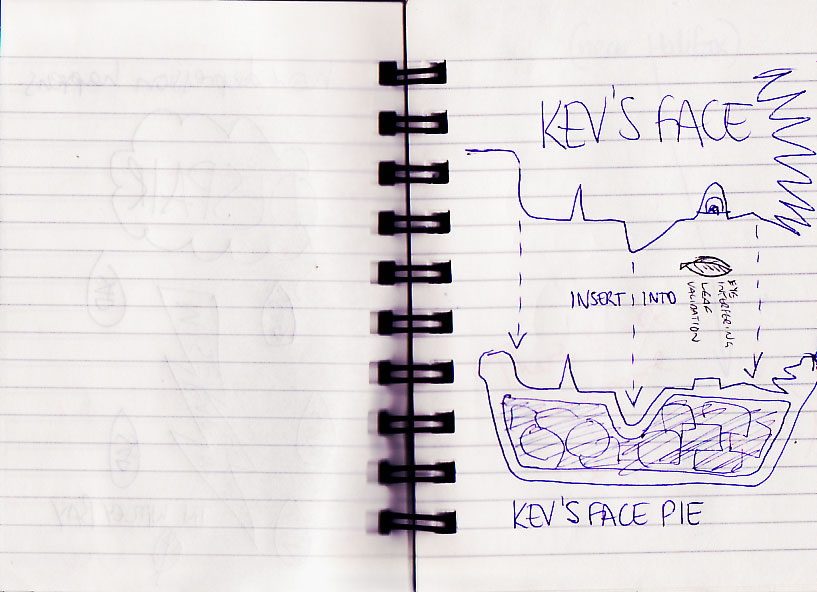 KEV'S FACE
INSERT INTO
EYE
INTERFERING
LEAF
VALIDATION
KEV'S FACE PIE